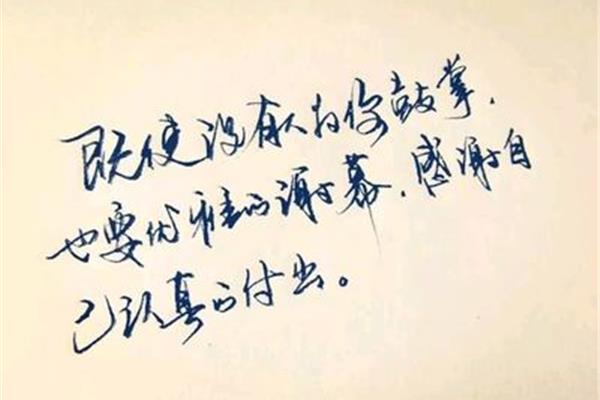 既使没有人为你鼓掌，
也要优雅的谢幕，感谢自
己认真的付出。